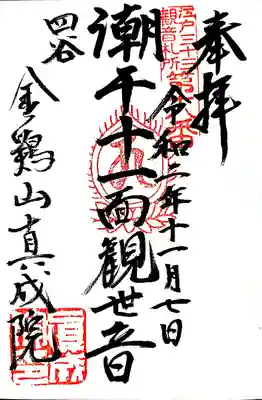 奉拝
江戸三十三
観音札所第十八番
令和三年十一月七日
潮干十一面観世音
四谷
金鶏山真成院